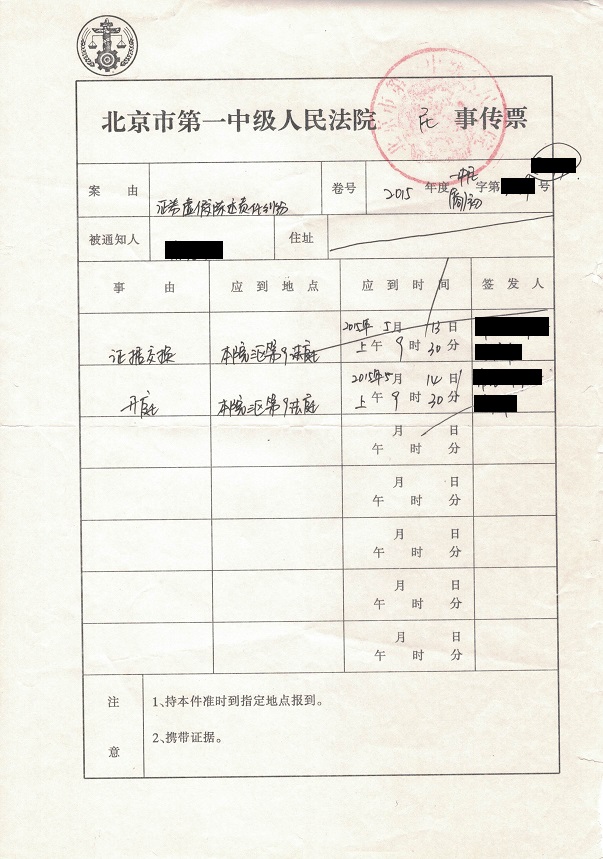 北京市第一中级人民法院 民 事传票
案由 证券虚假陈述责任纠纷 卷号 2015 年度 一中民(商)初 字第 号
被通知人 住址
事由 应到地点 应到时间 签发人
证据交换 本院三区第9法庭 2015年 5月 13日 上午 9时 30分
开庭 本院三区第9法庭 2015年5月 14日 上午 9时 30分
月 日
午 时 分
月 日
午 时 分
月 日
午 时 分
月 日
午 时 分
月 日
午 时 分
注意
1、持本件准时到指定地点报到。
2、携带证据。